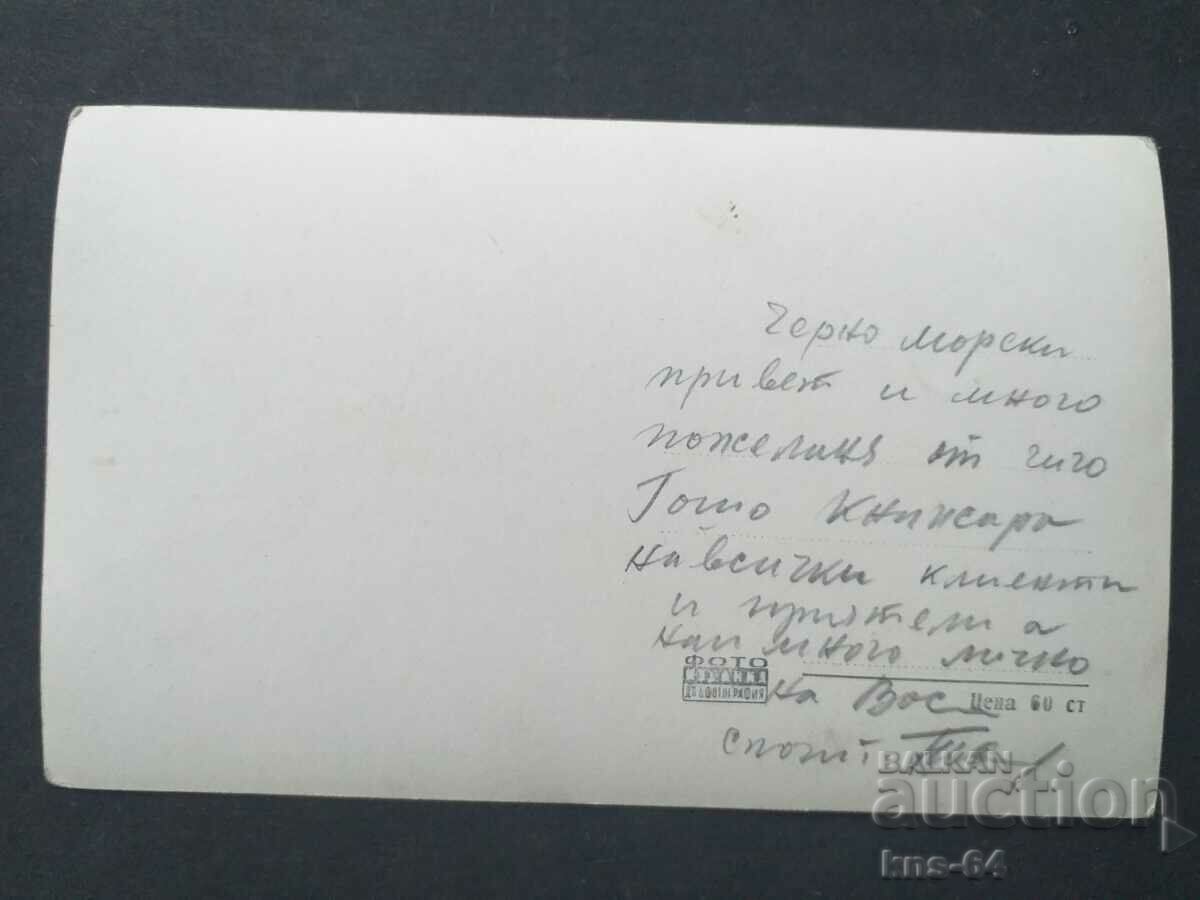 Черно морски
привет и много
пожелания от чичо
Гошо Книжара
на всички клиенти
и приятели а
най много лично
ФОТО
ДЪРЖФОТОГРАФИЯ
на Вос
Цена 60 ст
BALKAN
auction
kns-64